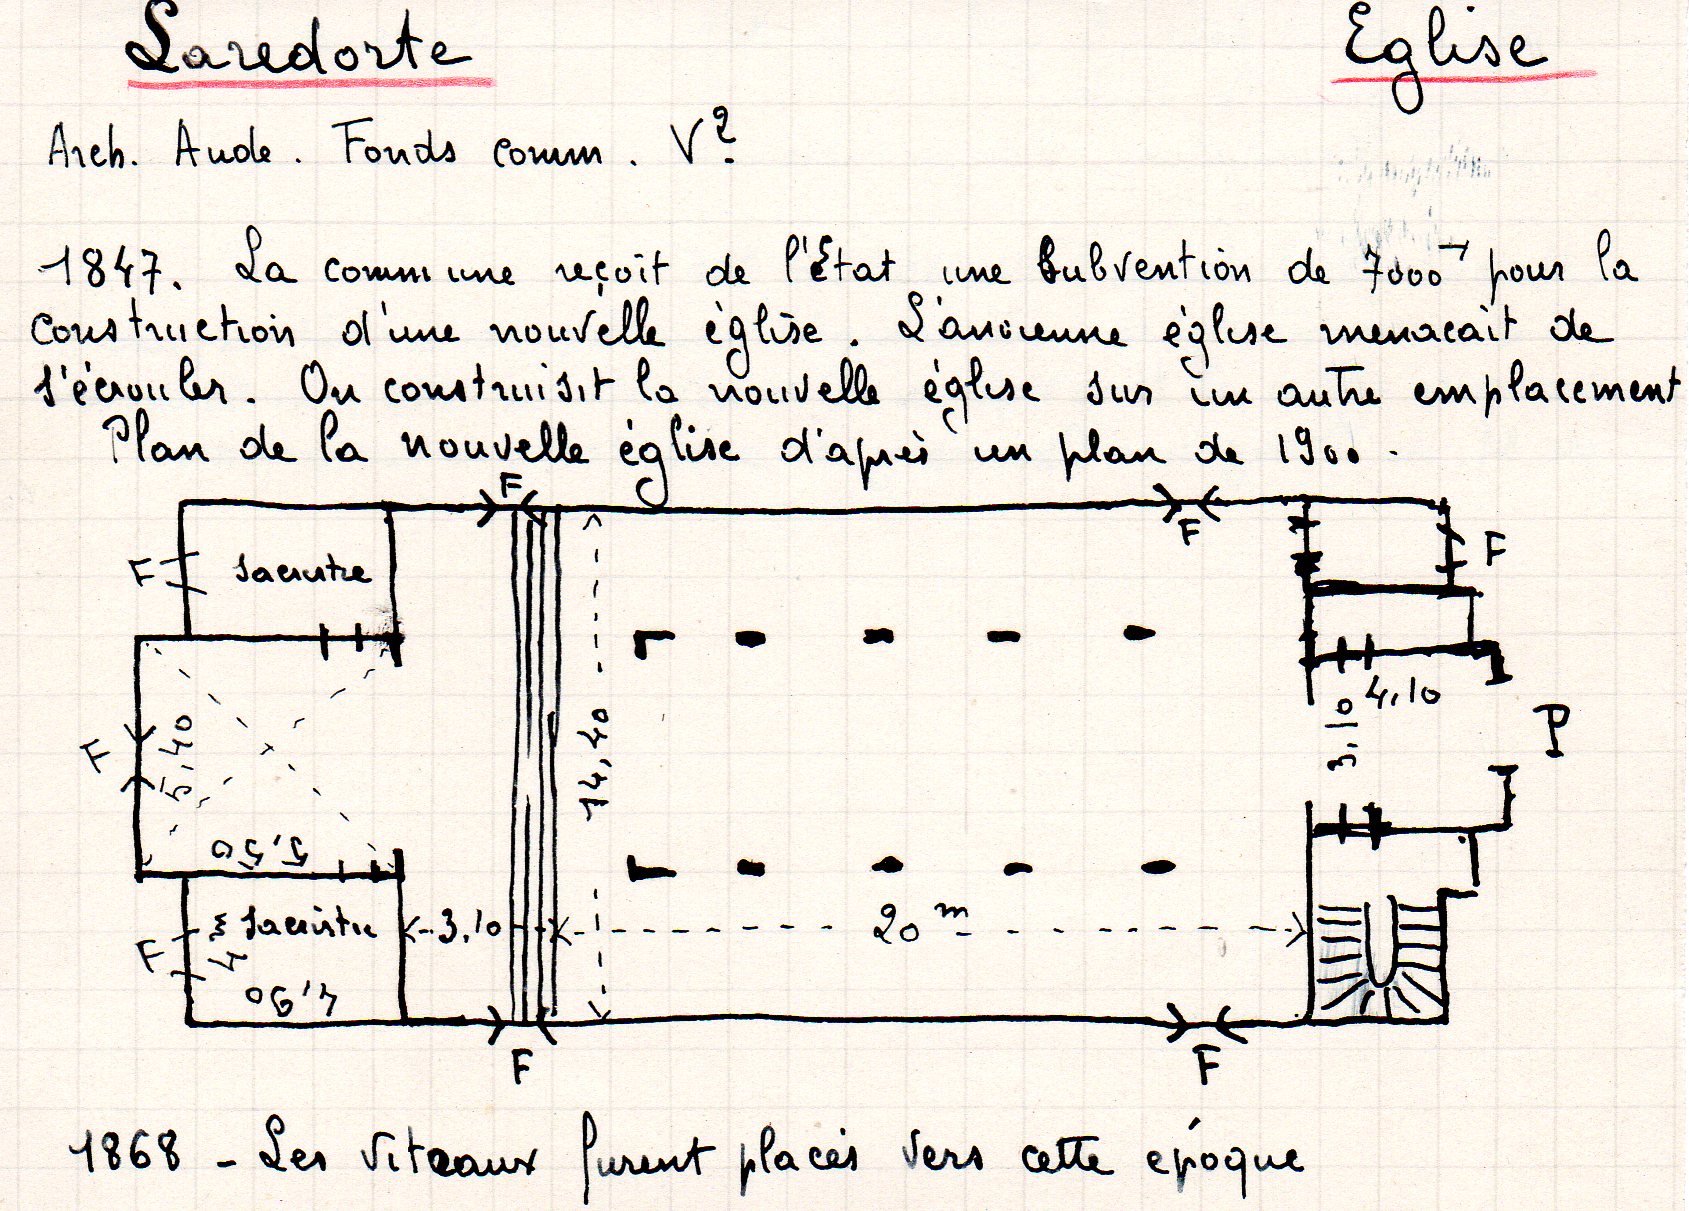 Laredorte Eglise
Arch. Aude. Fonds comm. V?
1847. La commune reçoit de l'État une Subvention de 7000 pour la
construction d'une nouvelle église. L'ancienne église menacait de
s'écrouler. On construisit la nouvelle église sur un autre emplacement
Plan de la nouvelle église d'après un plan de 1900.
F
F
F Sacristie F
4,10
3,10
P
F
5,40
14,40
5,50
F Sacristie 3,10 20 m
4
4,90
F
F
1868 - Les vitraux furent placés vers cette epoque